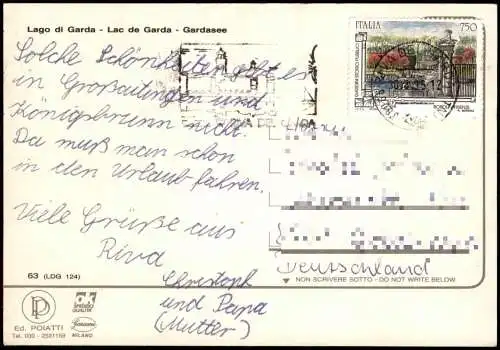 Lago di Garda - Lac de Garda - Gardasee
Solche Schönheiten gibt es
in Großaitingen und
Königsbrunn nicht.
Da muß man schon
in den Urlaub fahren.
Viele Grüße aus
Riva
Christoph
und Papa
(Mutter)
ITALIA 750
GIARDINI STORICI PUBBLICI
BOBOLI - FIRENZE
Deutschland
NON SCRIVERE SOTTO - DO NOT WRITE BELOW
63 (LDG 124)
Ed. POIATTI
MILANO